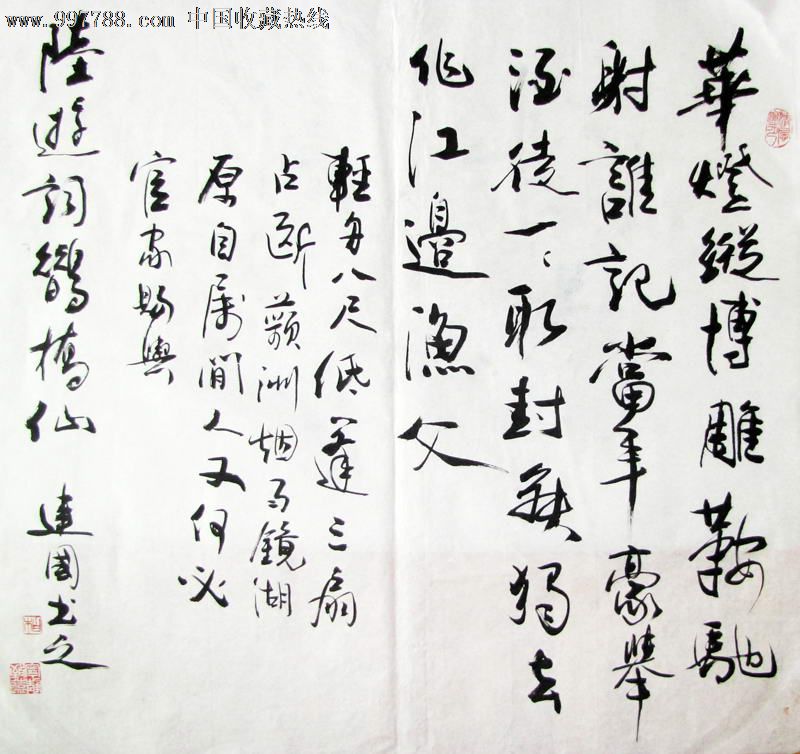 www.997788.com 中国收藏热线
華燈縱博雕鞍馳
射誰記當年豪舉
酒徒一一取封侯獨去
作江邊漁父
輕舟八尺低蓬三扇
占斷蘋洲烟雨鏡湖
原自属閒人又何必
官家賜與
陸遊詞鵲橋仙 建國書之